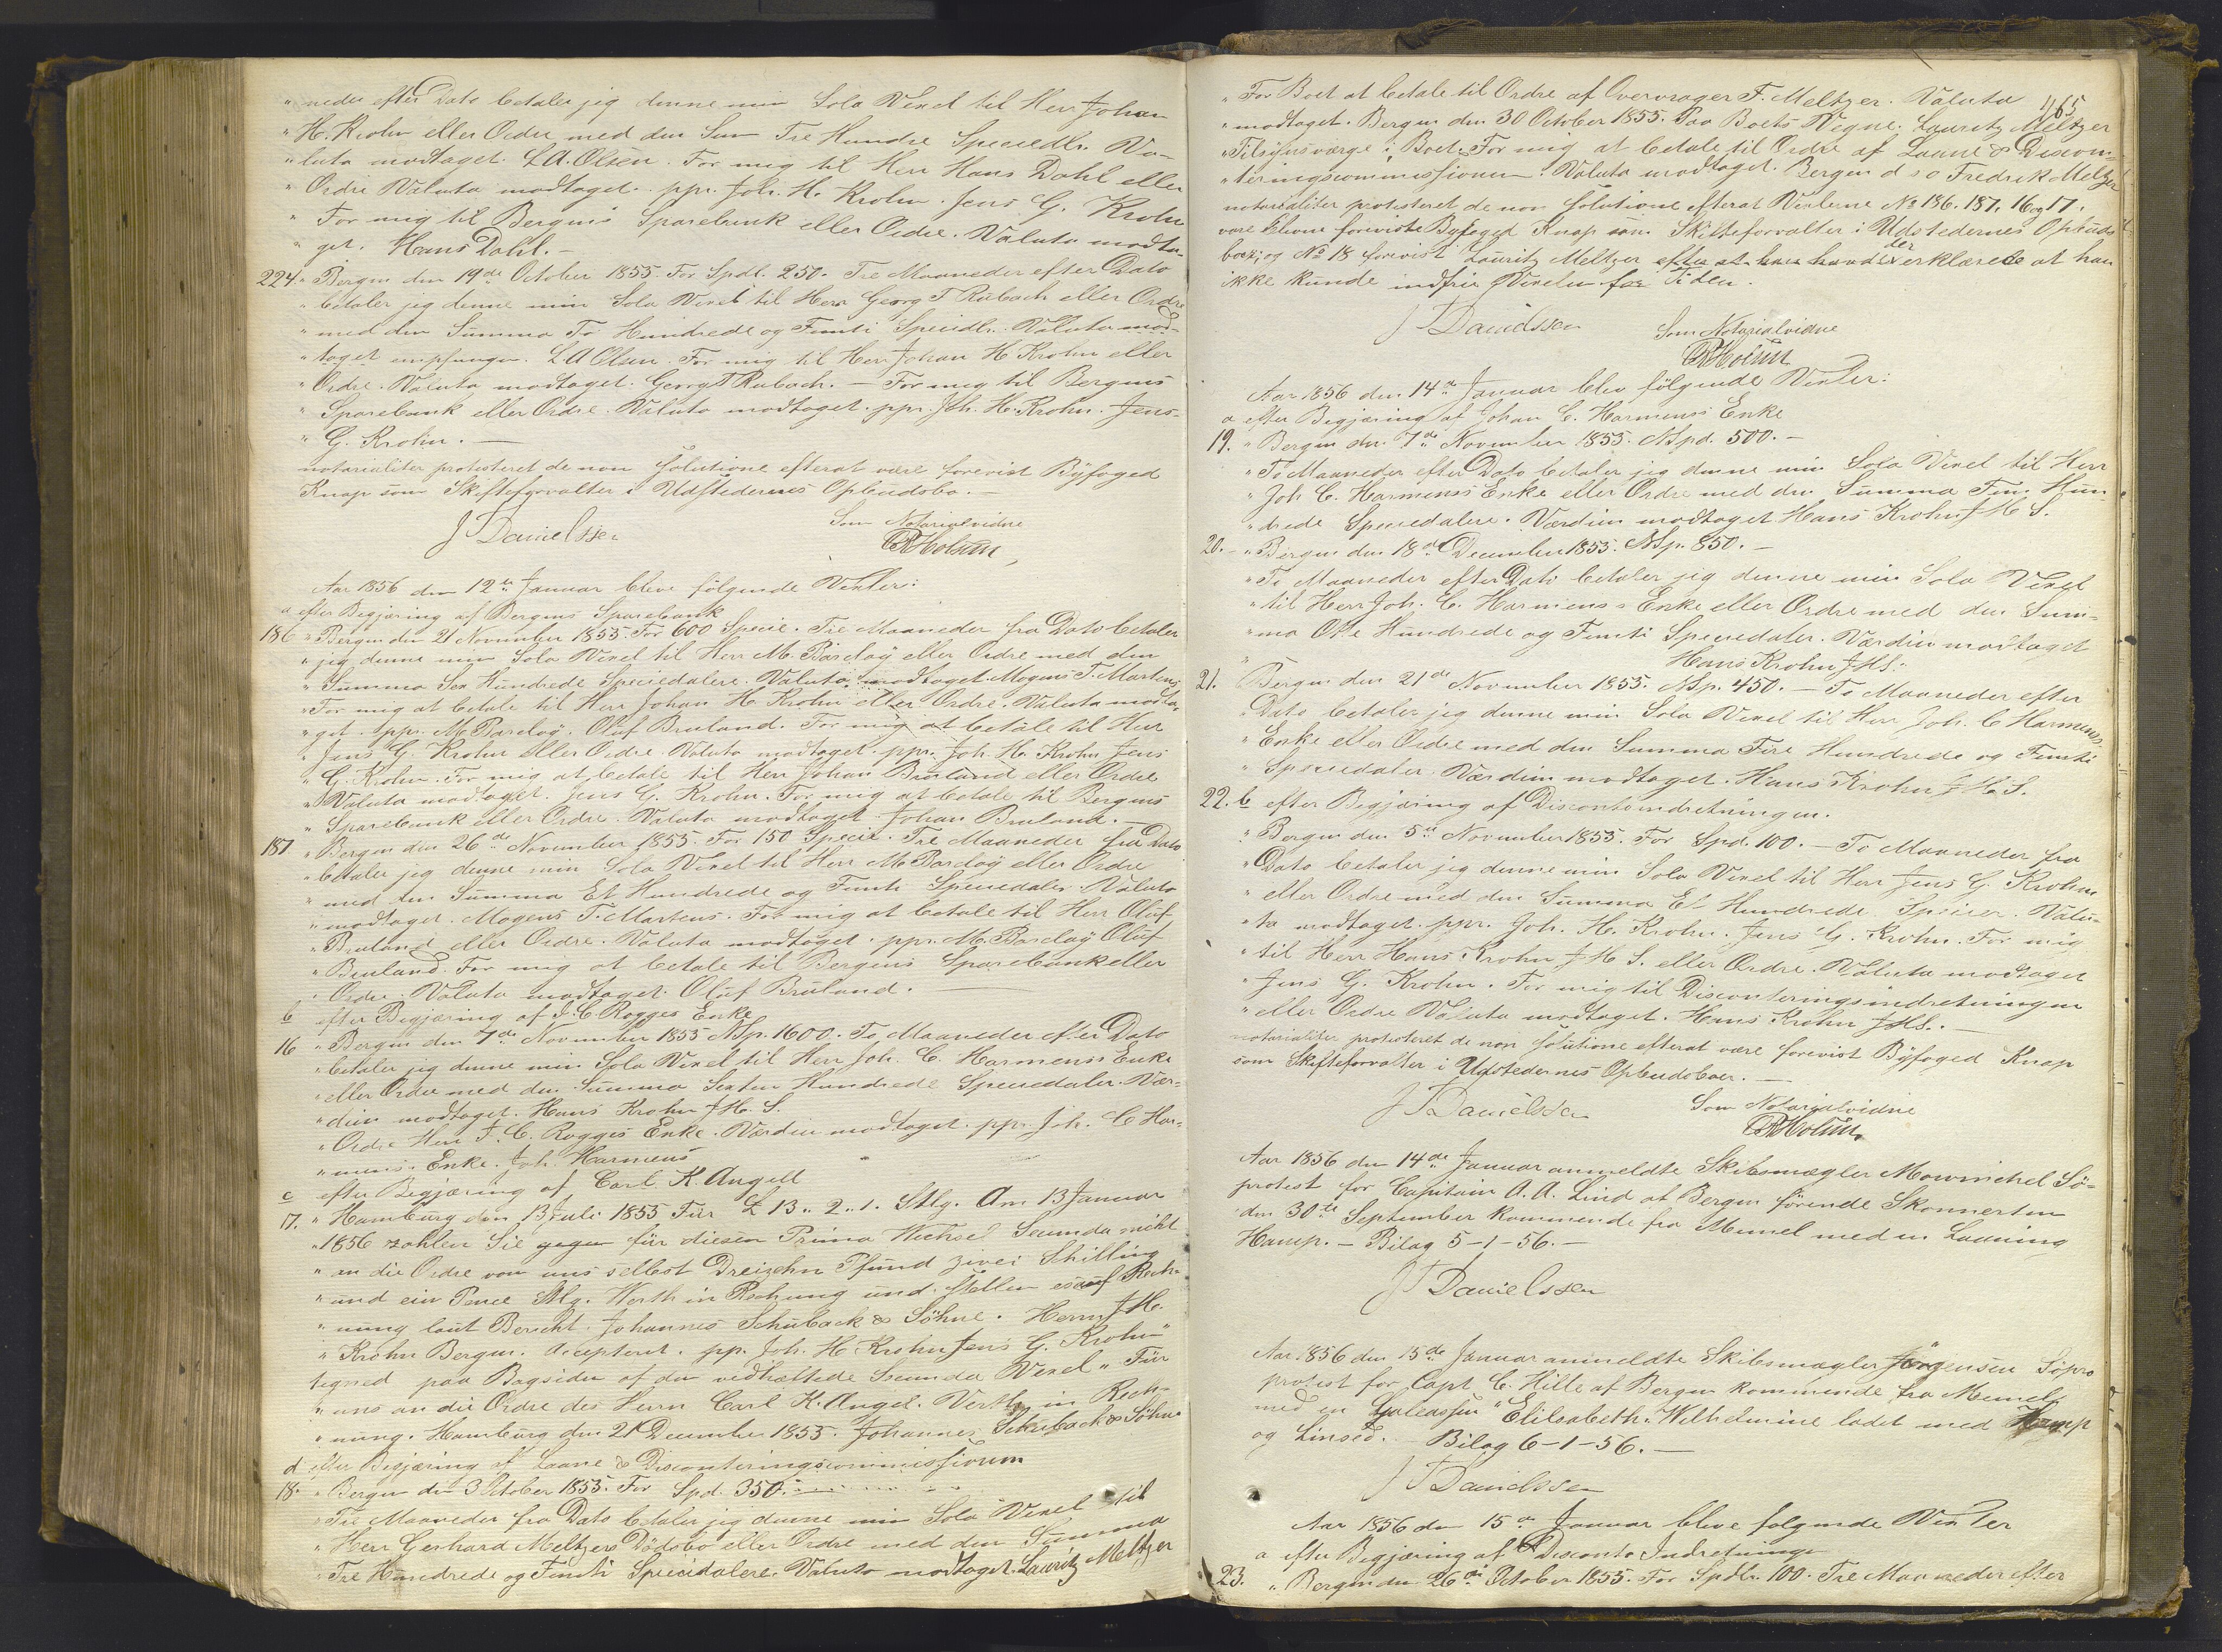 "neder efter Dato betaler jeg denne min Sola Vexel til Herr Johan
"H. Krohn eller Ordre med den Sum Tre Hundre Speciedlr. Va-
"luta modtaget. L A. Olsen. For mig til Herr Hans Dahl eller
"Ordre Valuta modtaget. ppr. Joh. H. Krohn. Jens G. Krohn
"For mig til Bergens Sparebank eller Ordre. Valuta modta-
"get. Hans Dahl. -
224. "Bergen den 19de October 1855. For Spdl. 250. Tre Maaneder efter Dato
"betaler jeg denne min Sola Vexel til Herr Georg T Rabach eller Ordre
"med den Summa To Hundrede og Femti Speciedlr. Valuta mod-
"taget L A Olsen. For mig til Herr Johan H Krohn eller
"Ordre. Valuta modtaget. Georg T Rabach. — For mig til Bergens
"Sparebank eller Ordre. Valuta modtaget. ppr. Joh. H. Krohn. Jens
"G. Krohn. —
notarialiter protesteret de non solutione efterat være forevist Byfoged
Knap som Skifteforvalter i Udstedernes Opbudsbo. —
J T Danielssen
Som Notarialvidne
R Holum
Aar 1856 den 12te Januar bleve følgende Vexler:
a efter Begjæring af Bergens Sparebank
186 "Bergen den 21 November 1855. For 600 Specie. Tre Maaneder fra Dato betaler
"jeg denne min Sola Vexel til Herr M. Barclay eller Ordre med den
"Summa Sex Hundrede Speciedalere. Valuta modtaget. Mogens T. Martens
"For mig at betale til Herr Johan H. Krohn eller Ordre. Valuta modta-
"get. ppr. M Barclay. Oluf Bruland. For mig at betale til Herr
"Jens G Krohn eller Ordre. Valuta modtaget. ppr. Joh. H. Krohn Jens
"G. Krohn. For mig at betale til Herr Johan Bruland eller Ordre
"Valuta modtaget. Jens G. Krohn. For mig at betale til Bergens
"Sparebank eller Ordre. Valuta modtaget. Johan Bruland. —
187 "Bergen den 26de November 1855. For 150 Specie. Tre Maaneder fra Dato
"betaler jeg denne min Sola Vexel til Herr M Barclay eller Ordre
"med den Summa Et Hundrede og Femti Speciedaler. Valuta
"modtaget. Mogens T. Martens. For mig at betale til Herr Oluf
"Bruland eller Ordre. Valuta modtaget. ppr. M. Barclay Oluf
"Bruland. For mig at betale til Bergens Sparebank eller
"Ordre. Valuta modtaget. Oluf Bruland. —
b efter Begjæring af J. C Rogges Enke
16 "Bergen den 7de November 1855 NSp. 1600. To Maaneder efter Dato
"betaler jeg denne min Sola Vexel til Herr Joh. C. Harmens's Enke
"eller Ordre med den Summa Sexten Hundrede Speciedaler. Vær-
"dien modtaget. Hans Krohn J H. S.
"Ordre Herr J. C. Rogges Enke. Værdien modtaget. ppr. Joh. C Har-
"mens's Enke. Joh Harmens
c efter Begjæring af Carl K. Angell
17. "Hamburg den 13 Juli 1855 Für £ 13 " 2 " 1. Stlg. Am 13 Januar
"1856 zahlen Sie gegen für diesen Prima Wechsel Secunda nicht
"an die Ordre von uns selbst Dreizehn Pfund zwei Schilling
"und ein Pence Stlg. Werth in Rechnung und stellen es auf Rech-
"nung laut Bericht. Johannes Schuback & Söhne. Herrn J H.
"Krohn Bergen. Accepteret. pp. Joh. H Krohn Jens G. Krohn"
tegned paa Bagsiden af den vedhæftede Secunda Vexel "Für
"uns an die Ordre des Herrn Carl K. Angel. Werth in Rech-
"nung. Hamburg den 21 December 1855. Johannes Schuback & Söhne
d efter Begjæring af Laane & Disconteringscommissionen
18. "Bergen den 3 October 1855. For Spd. 350.
"Tre Maaneder fra Dato betaler jeg denne min Sola Vexel til
"Herr Gerhard Meltzers Dødsbo eller Ordre med den Summa
"Tre Hundrede og Femti Speciedalere. Valuta modtaget. Lauritz Meltzer
465
"For Boet at betale til Ordre af Overvrager F. Meltzer. Valuta
"modtaget. Bergen den 30 October 1855. Paa Boets Vegne. Lauritz Meltzer
"Tilsynsværge i Boet. For mig at betale til Ordre af Laane & Discon-
"teringscommissionen. Valuta modtaget. Bergen d s o Fredrik Meltzer
notarialiter protesteret de non solutione efterat Vexlerne No 186. 187, 16 og 17.
vare blevne foreviste Byfoged Knap som Skifteforvalter i Udstedernes Opbuds
boer; og No 18 forevist Lauritz Meltzer efter at han havde der erklærede at han
ikke kunde indfrie Vexelen for Tiden.
J T Danielssen
Som Notarialvidne
R Holum
Aar 1856 den 14de Januar blev følgende Vexler:
a efter Begjæring af Johan C. Harmens's Enke
19. "Bergen den 7de November 1855. NSpd. 500. —
"To Maaneder efter Dato betaler jeg denne min Sola Vexel til Herr
"Joh C. Harmens's Enke eller Ordre med den Summa Fem Hun-
"drede Speciedalere. Værdien modtaget Hans Krohn J H S.
20. — "Bergen den 18de December 1855. NSp. 850. —
"To Maaneder efter Dato betaler jeg denne min Sola Vexel
"til Herr Joh. C. Harmens's Enke eller Ordre med den Sum-
"ma Otte Hundrede og Femti Speciedaler. Værdien modtaget
" Hans Krohn J H S.
21. Bergen den 21de November 1855. NSp. 450. — To Maaneder efter
"Dato betaler jeg denne min Sola Vexel til Herr Joh. C Harmens's
"Enke eller Ordre med den Summa Fire Hundrede og Femti
"Speciedaler. Værdien modtaget. Hans Krohn J H. S.
22. b efter Begjæring af Discontoindretningen.
"Bergen den 5te November 1855. For Spd. 100. — To Maaneder fra
"Dato betaler jeg denne min Sola Vexel til Herr Jens G. Krohn
"eller Ordre med den Summa Et Hundrede Specier. Valu-
"ta modtaget. ppr. Joh. H. Krohn. Jens G. Krohn. For mig
"til Herr Hans Krohn J H S. eller Ordre. Valuta modtaget
"Jens G. Krohn. For mig til Disconteringsindretningen
"eller Ordre Valuta modtaget. Hans Krohn J H S. —
notarialiter protesteret de non solutione efterat være forevist Byfoged Knap
som Skifteforvalter i Udstedernes Opbudsboer. —
J T Danielssen
Som Notarialvidne
R Holum
Aar 1856 den 14de Januar anmeldte Skibsmægler Mowinckel Sö-
protest for Capitain A. A. Lind af Bergen førende Skonnerten
den 30te September kommende fra Memel med en Ladning
Hamp. — Bilag 5-1-56. —
J T Danielssen
Aar 1856 den 15de Januar anmeldte Skibsmægler Jørgensen Søpro
protest for Capt C. Hille af Bergen kommende fra Memel
med en Galeassen "Elilsabeth Wilhelmine ladet med Hamp
og Linsæd. Bilag 6-1-56. —
J T Danielssen
Aar 1856 den 15de Januar bleve følgende Vexler
a efter Begjæring af Disconto Indretninge
23. "Bergen den 26de October 1855. For Spdlr. 100. Tre Maaneder efter